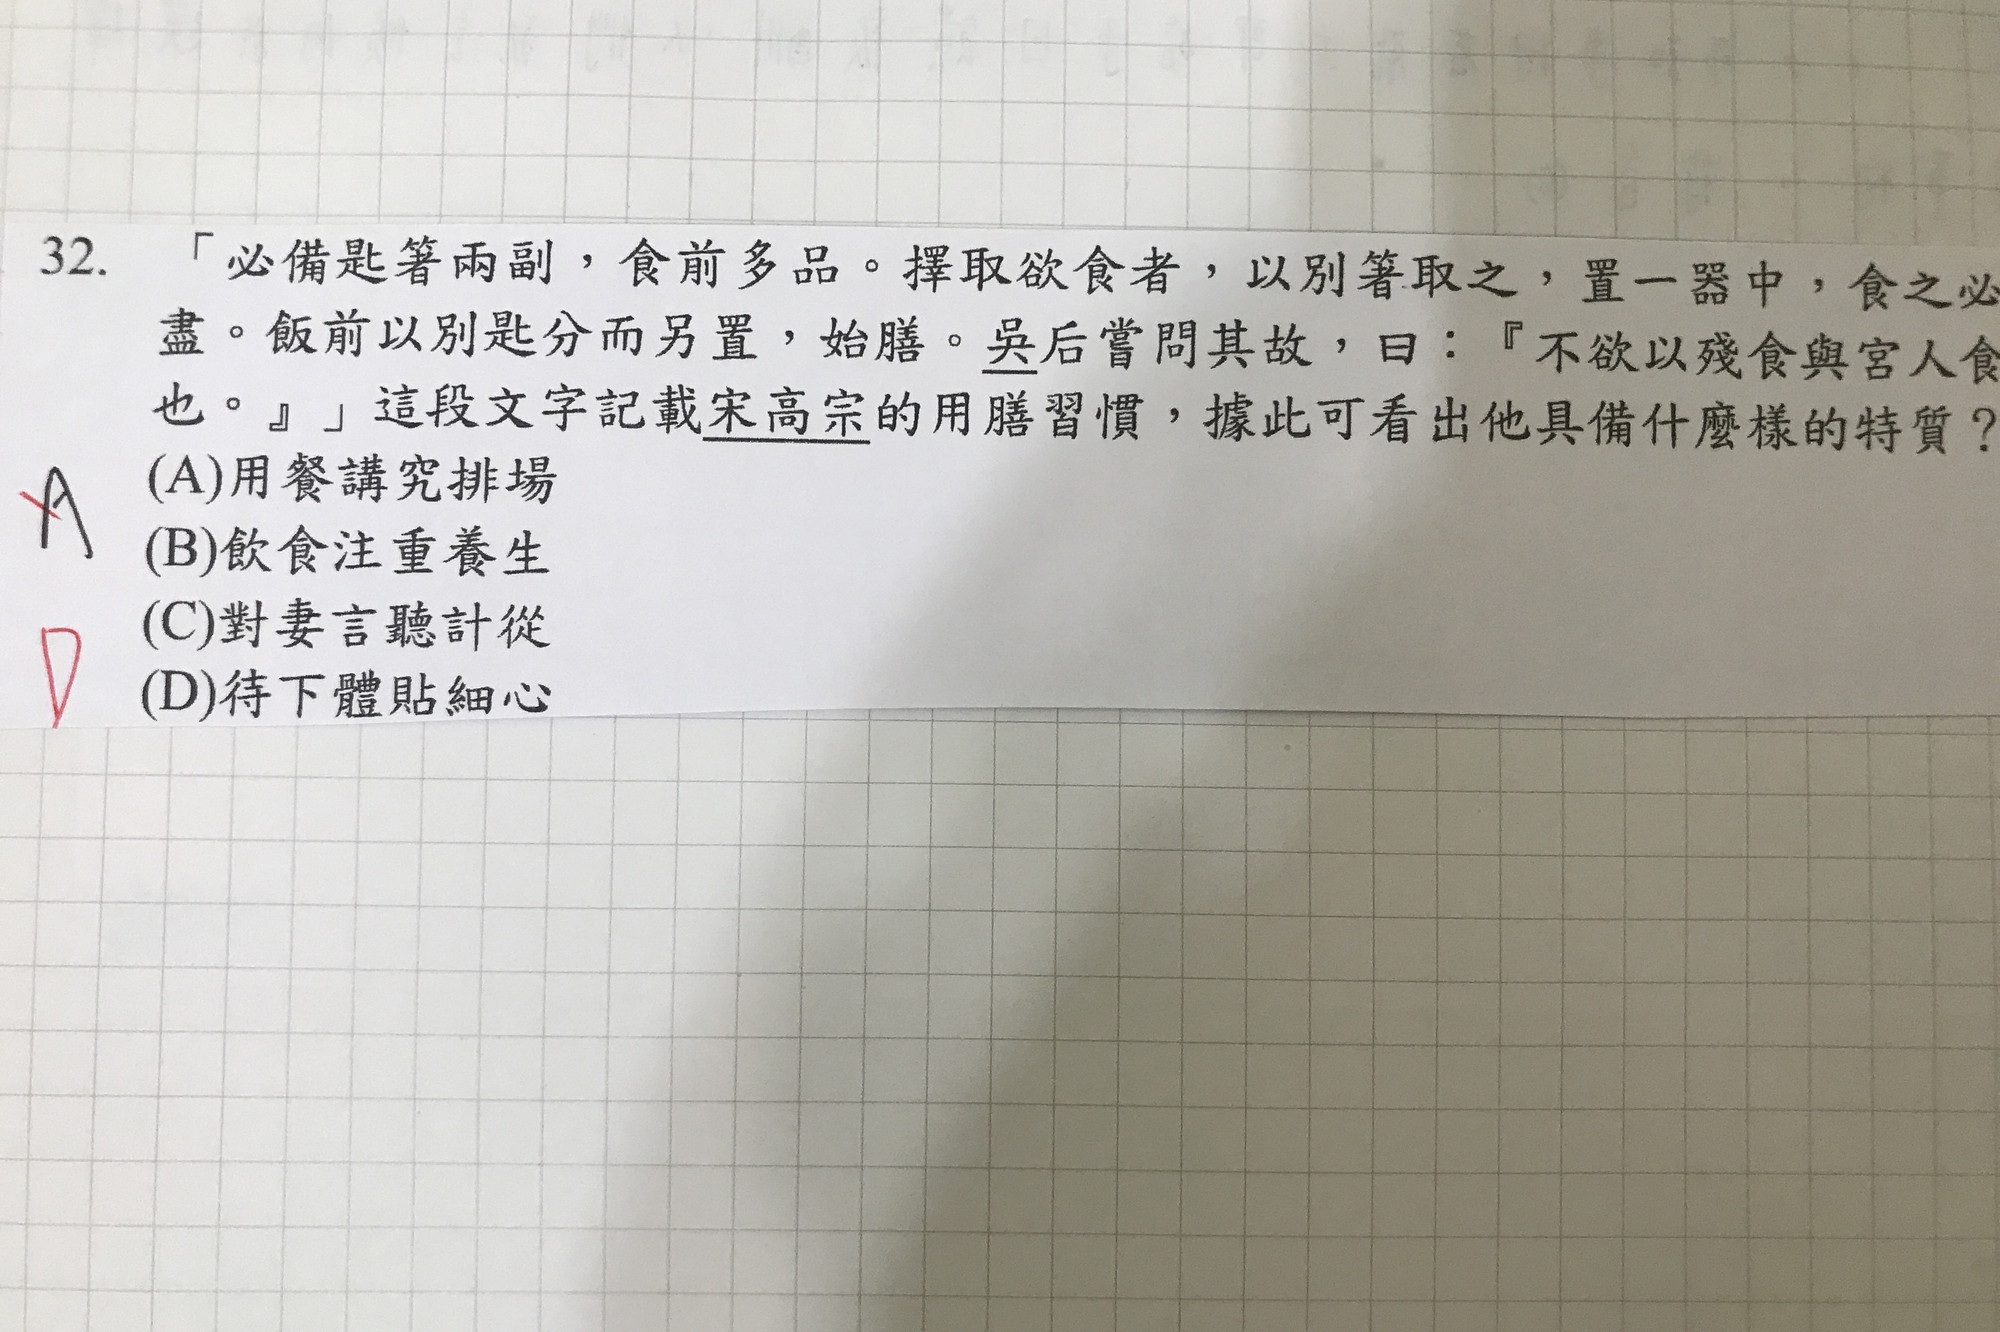 32. 「必備匙箸兩副，食前多品。擇取欲食者，以別箸取之，置一器中，食之必
盡。飯前以別匙分而另置，始膳。吳后嘗問其故，曰：『不欲以殘食與宮人食
也。』」這段文字記載宋高宗的用膳習慣，據此可看出他具備什麼樣的特質？
A
(A)用餐講究排場
(B)飲食注重養生
(C)對妻言聽計從
D
(D)待下體貼細心